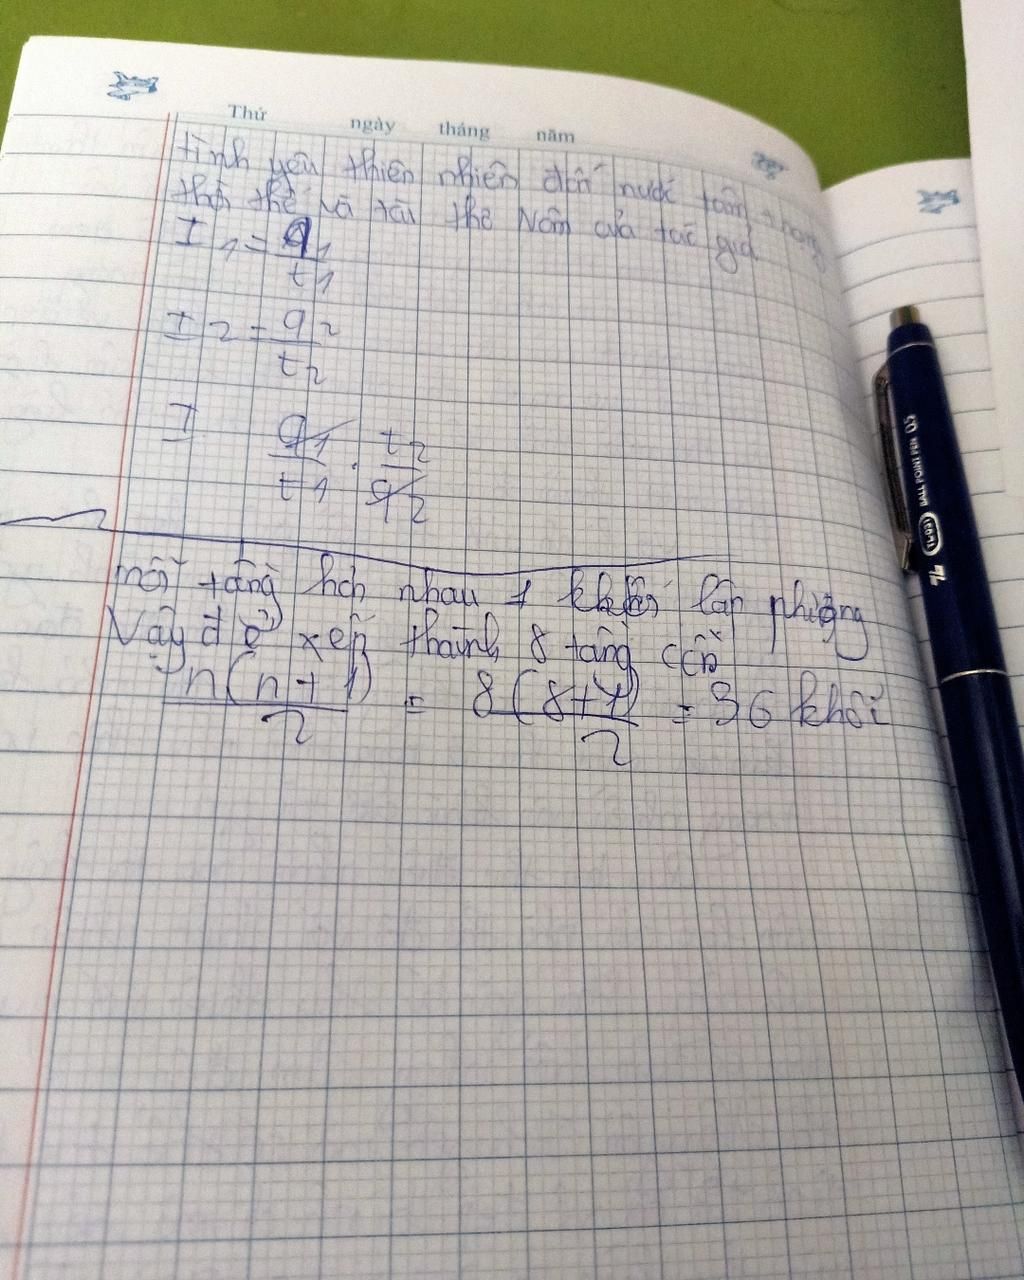 Thứ ngày tháng năm
tình yêu thiên nhiên đất nước
thơ của tác giả
I1 = q1/t1
I2 = q2/t2
I q1/t1 . t2/q2
mỗi tầng hơn nhau 1 khối lập phương
Vậy để xếp thành 8 tầng cần
n(n+1)/2 = 8(8+1)/2 = 36 khối
BALL POINT PEN 0.5